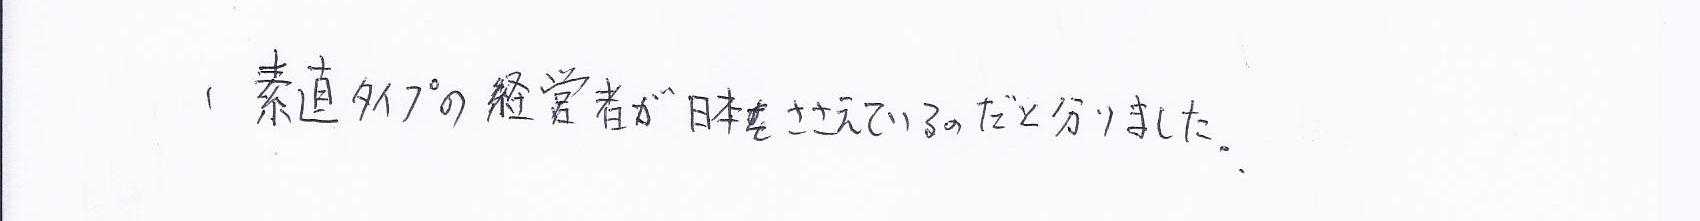 素直タイプの経営者が日本をささえているのだと分りました。